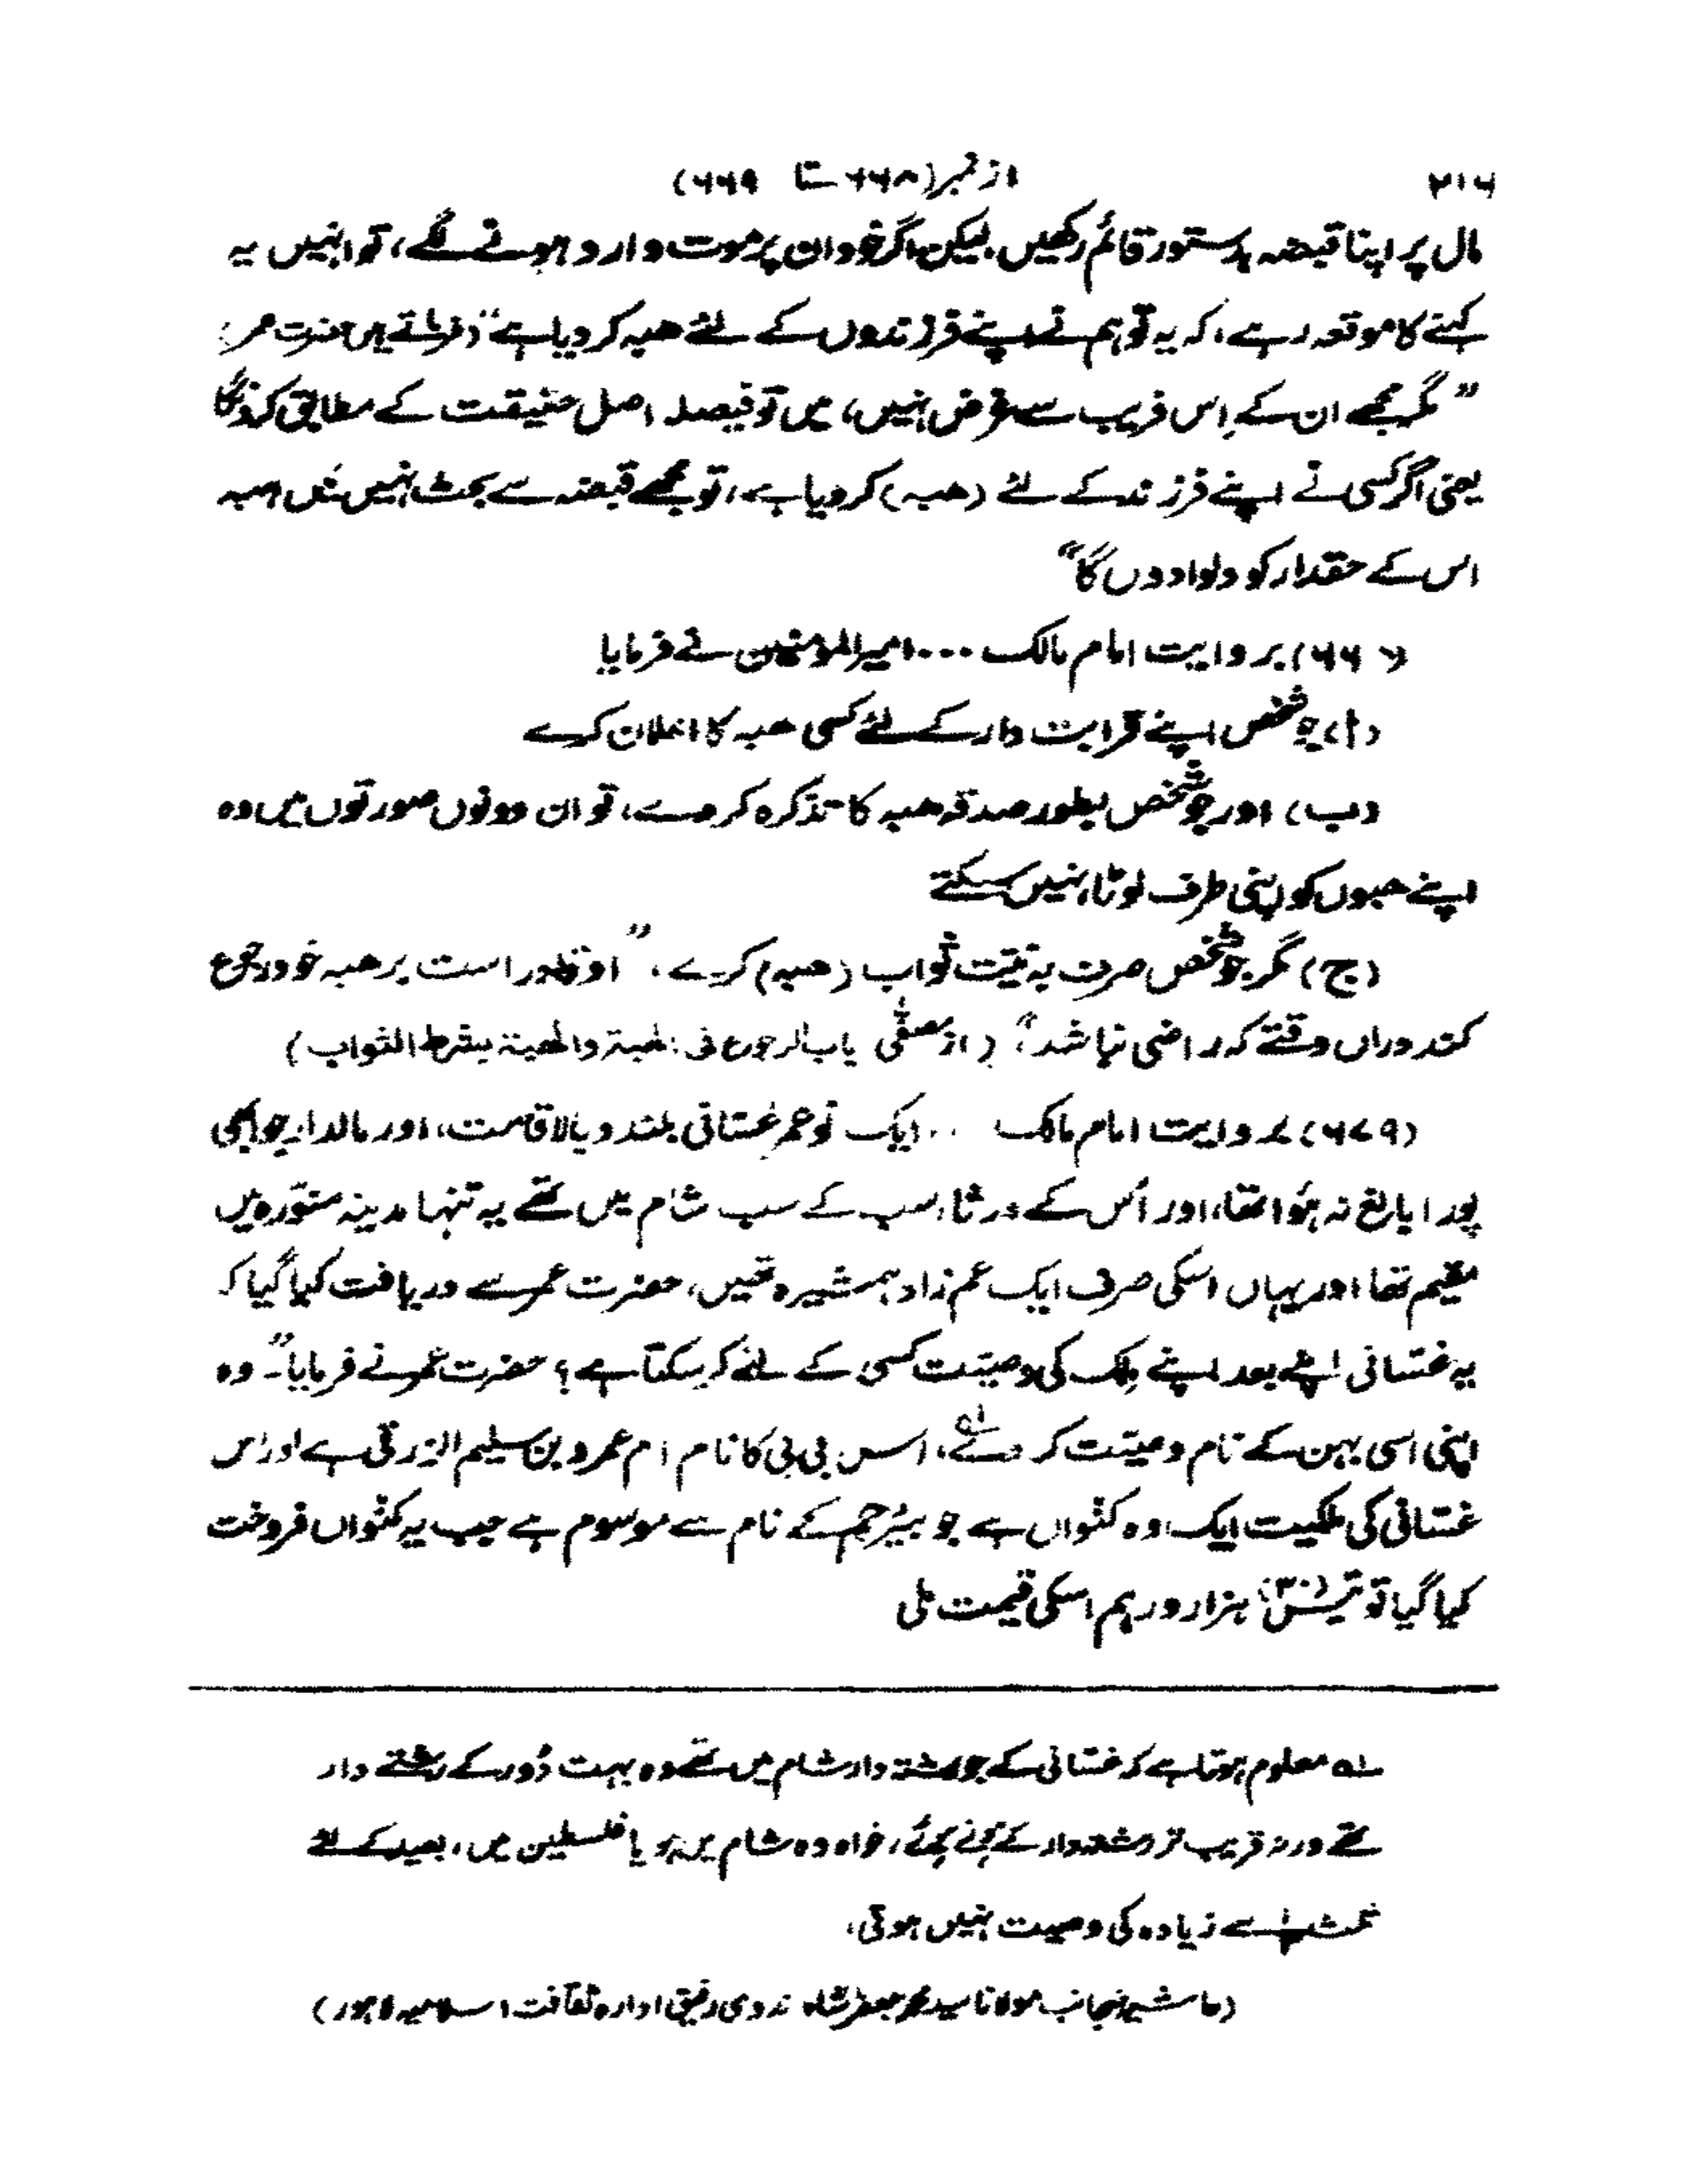 ۲۱۶ از نمبر (۶۶۸ تا ۶۶۹)
مال پر اپنا قبضہ بدستور قائم رکھیں، لیکن اگر خود ان پر موت وارد ہونے لگے، تو انہیں یہ
کہنے کا موقعہ رہے، کہ یہ تو ہم نے اپنے فرزندوں کے لئے ھبہ کر دیا ہے" (فرماتے ہیں حضرت عمر:
" مگر مجھے ان کے اِس فریب سے غرض نہیں، میں تو فیصلہ اصل حقیقت کے مطابق کرونگا
یعنی اگر کسی نے اپنے فرزند کے لئے (ھبہ) کر دیا ہے، تو مجھے قبضہ سے بحث نہیں میں ھبہ
اس کے حقدار کو دلوا دوں گا"
بروایت امام مالک ... امیر المؤمنین نے فرمایا
(ا) جو شخص اپنے قرابت دار کے لئے کسی ھبہ کا اعلان کرے
(ب) اور جو شخص بطور صدقہ ھبہ کا تذکرہ کر دے، تو ان دونوں صورتوں میں وہ
اپنے ھبوں کو اپنی طرف لوٹا نہیں سکتے
(ج) مگر جو شخص صرف بہ نیّت ثواب (ھبہ) کرے، "او است بر ھبہ خود رجوع
کند دراں وقتے کہ راضی نباشد"، (از مصفّٰی باب الرجوع فی الھبۃ والھبۃ بشرط الثواب)
(۶۷۹) بروایت امام مالک ... ایک نو عمر غسّانی بلند و بالا قامت، اور مالدار جو ابھی
پورا بالغ نہ ہُوا تھا، اور اُس کے ورثا، سب کے سب شام میں تھے یہ تنہا مدینہ منوّرہ میں
مقیم تھا اور یہاں اسکی صرف ایک عم زاد ہمشیرہ تھیں، حضرت عمر سے دریافت کیا گیا کہ
یہ غسّانی اپنے بعد اپنے مِلک کی وصیّت کسی کے لئے کر سکتا ہے؟ حضرت عمر نے فرمایا"۔ وہ
اپنی اسی بہن کے نام وصیّت کر دے، اس بی بی کا نام ام عمرو بن سلیم الزرقی ہے اور اس
غسّانی کی ملکیت ایک وہ کنُواں ہے جو بیرُ جم کے نام سے موسوم ہے جب یہ کنُواں فروخت
کیا گیا تو تیس (۳۰) ہزار درہم اسکی قیمت ملی
لہ معلوم ہوتا ہے کہ غسّانی کے جو رشتہ دار شام میں تھے وہ بہت دُور کے رشتے دار
تھے ورنہ قریب تر رشتہ دار کے ہوتے ہوئے، خواہ وہ شام میں ہو یا فلسطین میں، بعید کے لئے
ثلث ⅓ سے زیادہ کی وصیت نہیں ہوتی،
(حاشیہ منجانب مولانا سید محمد جعفر شاہ ندوی رفیق ادارہ ثقافت اسلامیہ لاہور)